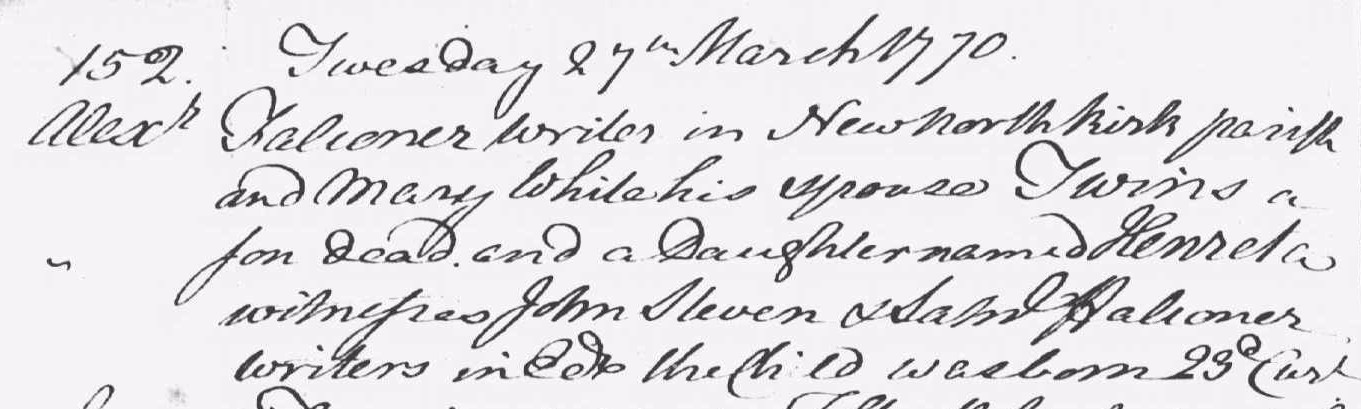 152. Twesday 27th March 1770.
Alexr Falconer writer in New north kirk parish
and Mary White his spouse Twins a
son dead. and a Daughter named Henreta
witnesses John Steven & Falconer
writers in Edr the Child was born 23d Curt